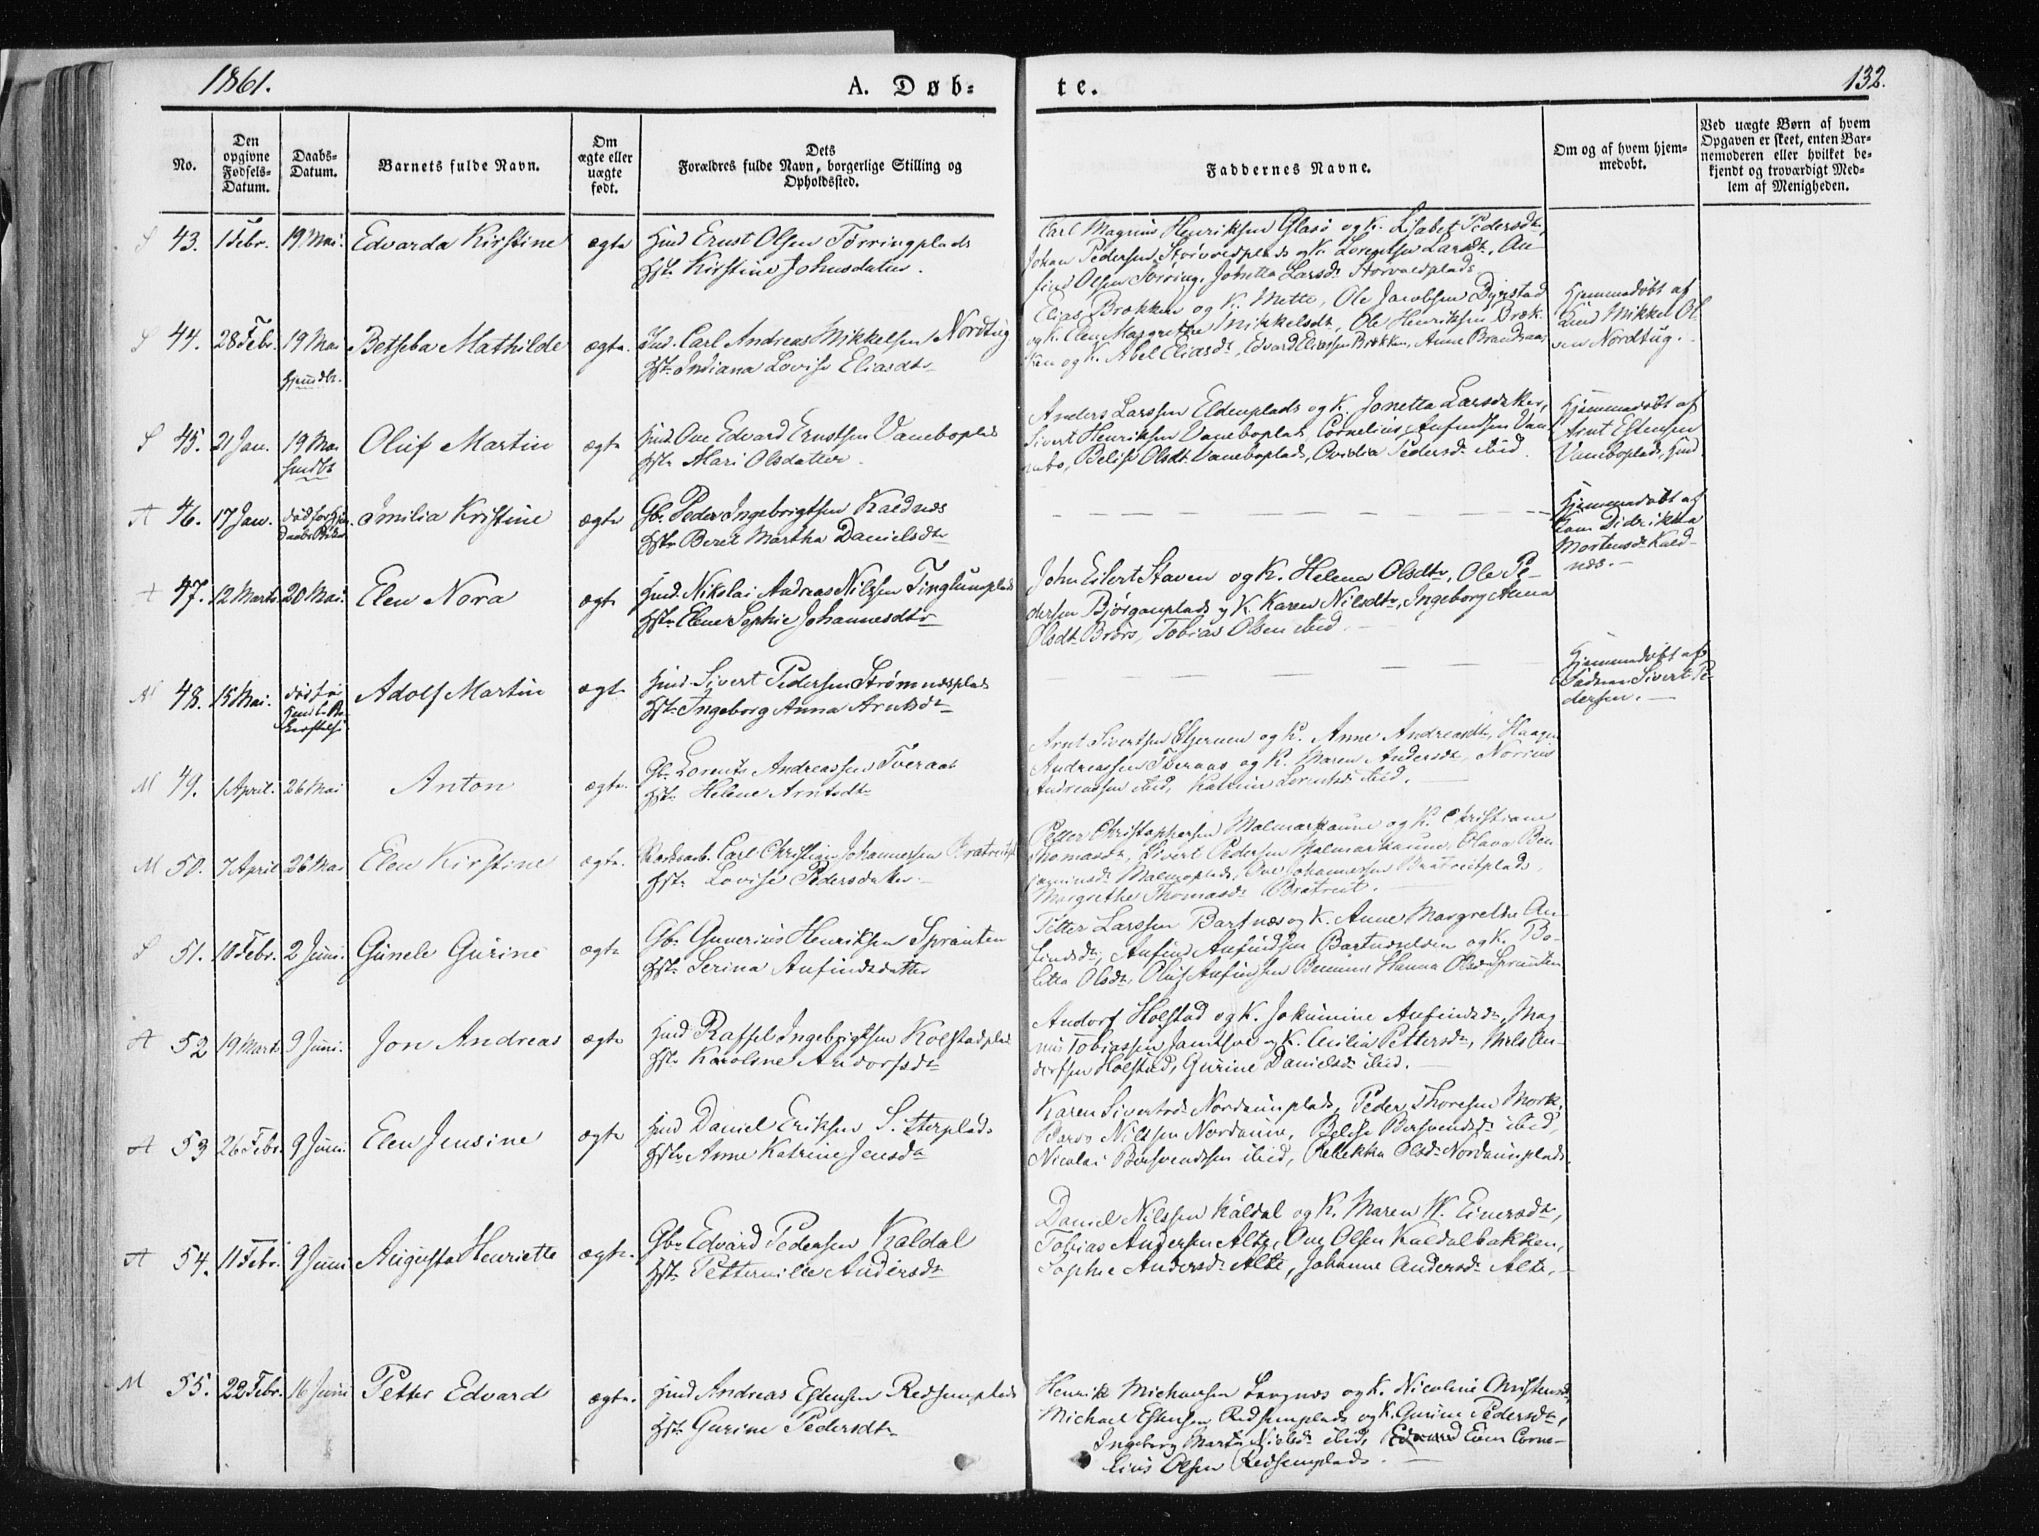 1861.
A. Døb-
te.
132.
No.
Den opgivne Fødsels-Datum.
Daabs-Datum.
Barnets fulde Navn.
Om ægte eller uægte født.
Dets Forældres fulde Navn, borgerlige Stilling og Opholdssted.
Faddernes Navne.
Om og af hvem hjemmedøbt.
Ved uægte Børn af hvem Opgaven er skeet, enten Barnemoderen eller hvilket bekjendt og troværdigt Medlem af Menigheden.
S 43. 1 Febr. 19 Mai. Edvarda Kirstine ægte Hmd Ernst Olsen Tørringplads
Hst. Kirstine Johnsdatter.
Carl Magnus Henriksen Glasø og K. Lisabet Pedersdtr,
Johan Pedersen Størvoldplads og K. Larsdtr, An-
find Olsen Tørring, Jonetta Larsdtr Størvoldplads
S 44. 28 Febr. 19 Mai Betseba Mathilde ægte. Hmd. Carl Andreas Mikkelsen Nordtug
hjemdbt.
Hst. Indiana Lovise Eliasdtr
Elias Brækken og K. Mette, Ole Jacobsen Dyrstad
og K. Elen Margrethe Mikkelsdtr, Ole Henriksen Bræk-
ken og K. Abel Eliasdtr, Edvard Eliassen Brækken, Anne
Hjemmedøbt af
Hmd Mikkel Ol-
sen Nordtug.
S 45. 21 Jan. 19 Mai Oluf Martin ægte Hmd. Ove Edvard Ernstsen Vaneboplad
Hst. Mari Olsdatter.
Anders Larssen Eldenplads og K. Jonetta Larsdatter,
Sivert Henriksen Vaneboplads, Cornelius Anfindsen Va-
nebo, Belise Olsdt Vaneboplads, Ovidia Pedersdt ibid.
Hjemmedøbt af
Arnt Estensen
Vaneboplads, Hmd
A 46. 17 Jan. Emilia Kristine ægte Gb. Peder Ingebrigtsen Kaldnes
Hst. Beret Martha Danielsdtr
Hjemmedøbt af
Didrikka
Mortensdt Kald-
nes.
47. 12 Marts 20 Mai. Elen Nora ægte Hmd. Nikolai Andreas Nilssen Tinglumplads
Hst. Elene Sophie Johannesdtr
John Eilert Staven og K. Helena Olsdtr, Ole Pe-
dersen Bjørganplads og K. Karen Nilsdtr, Ingeborg Anna
Olsdt Brørs, Tobias Olsen ibid.
N 48. 15 Mai. Adolf Martin ægte Hmd. Sivert Pedersen Strømnesplads
Hst. Ingeborg Anna Arntsdtr
Hjemmedøbt af
Faderen Sivert Pe-
dersen.
M 49. 1 April. 26 Mai Anton ægte. Gb. Lorents Andreassen Tveraas
Hst. Helene Arntsdtr
Arnt Sivertsen og K. Anne Andreasdtr, Haagen
Andreassen Tveraas og K. Maren Andersdt, Norrius
Andreassen ibid, Katrine Lorentsdt ibid.
M 50. 7 April 26 Mai Elen Kirstine ægte. Carl Christian Johannessen
Hst. Lovise Pedersdatter
Petter Christophersen Malmarkaune og K. Christiane
Thomasdt, Sivert Pedersen Malmarkaune, Olava Ben-
jaminsdt Malmoplads, Ove Johannessen Bratreitplads,
Margrethe Thomasdt Bratreit.
S 51. 10 Febr. 2 Juni. Gunele Gurine ægte Gb. Gunerius Henriksen Sprauten
Hst. Serina Anfindsdatter
Petter Larssen Bartnes og K. Anne Margrethe An-
findsdt, Anfind Anfindsen og K. Bo-
letta Olsdt, Oluf Anfindsen Hanna Olsdt Sprauten
A 52 19 Marts 9 Juni. Jon Andreas ægte Hmd Raffel Ingebrigtsen Kolstadplad
Hst. Karolene Andorfsdt
Andorf Holstad og K. Jokumine Anfindsdt, Mag-
nus Tobiassen og K. Cecilia Pettersdt, Niels An-
dorfsen Holstad, Gurine Danielsdt ibid.
A 53 26 Febr. 9 Juni. Elen Jensine ægte Hmd Daniel Eriksen
Hst. Anne Katrine Jensdt
Karen Sivertsdt Nordaunplads, Peder Thoresen Mork,
Nilssen Nordaune, Belise Bersvendsdt ibid,
Nicolai Bersvendsen ibid, Rebekka Olsdt Nordaunplads.
A 54. 11 Febr. 9 Juni Augusta Henriette ægte. Gb. Edvard Pedersen Kaldal
Hst. Petternille Andersdt
Daniel Nilssen Kaldal og K. Maren W. Einersdt,
Tobias Andersen Alte, Ove Olsen Kaldalbakken,
Sophie Andersdt Alte, Johanne Andersdt Alte.
M 55. 22 Febr. 16 Juni Petter Edvard ægte. Hmd Andreas Estensen Redsemplads
Hst. Gurine Pedersdtr
Henrik Michaelsen og K. Nicoline Christensdt,
Michael Estensen Redsemplads og K. Gurine Pedersdt,
Ingeborg Marta ibid, Even Corne-
lius Olsen Redsemplads.